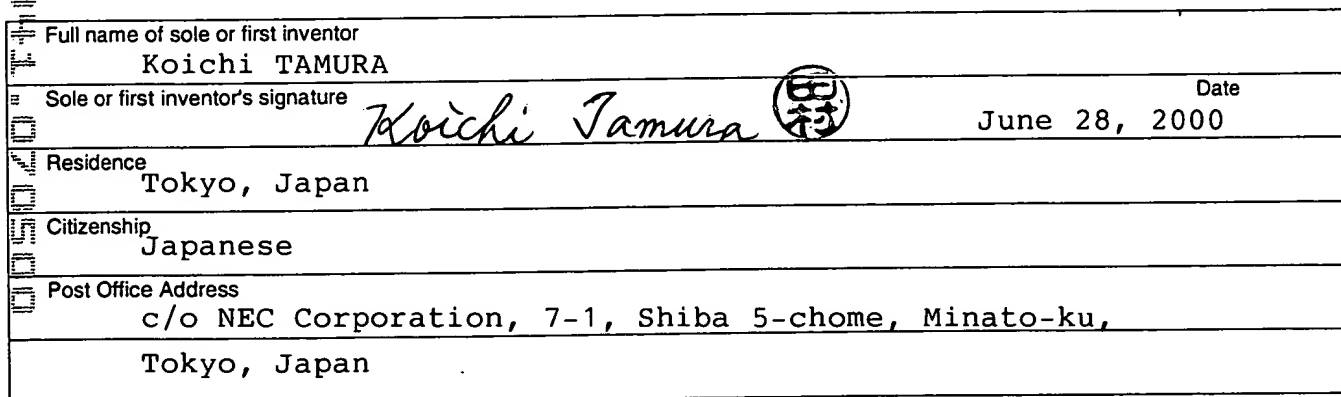 Full name of sole or first inventor
Koichi TAMURA
Sole or first inventor's signature Koichi Tamura 田村 Date
June 28, 2000
Residence
Tokyo, Japan
Citizenship
Japanese
Post Office Address
c/o NEC Corporation, 7-1, Shiba 5-chome, Minato-ku,
Tokyo, Japan